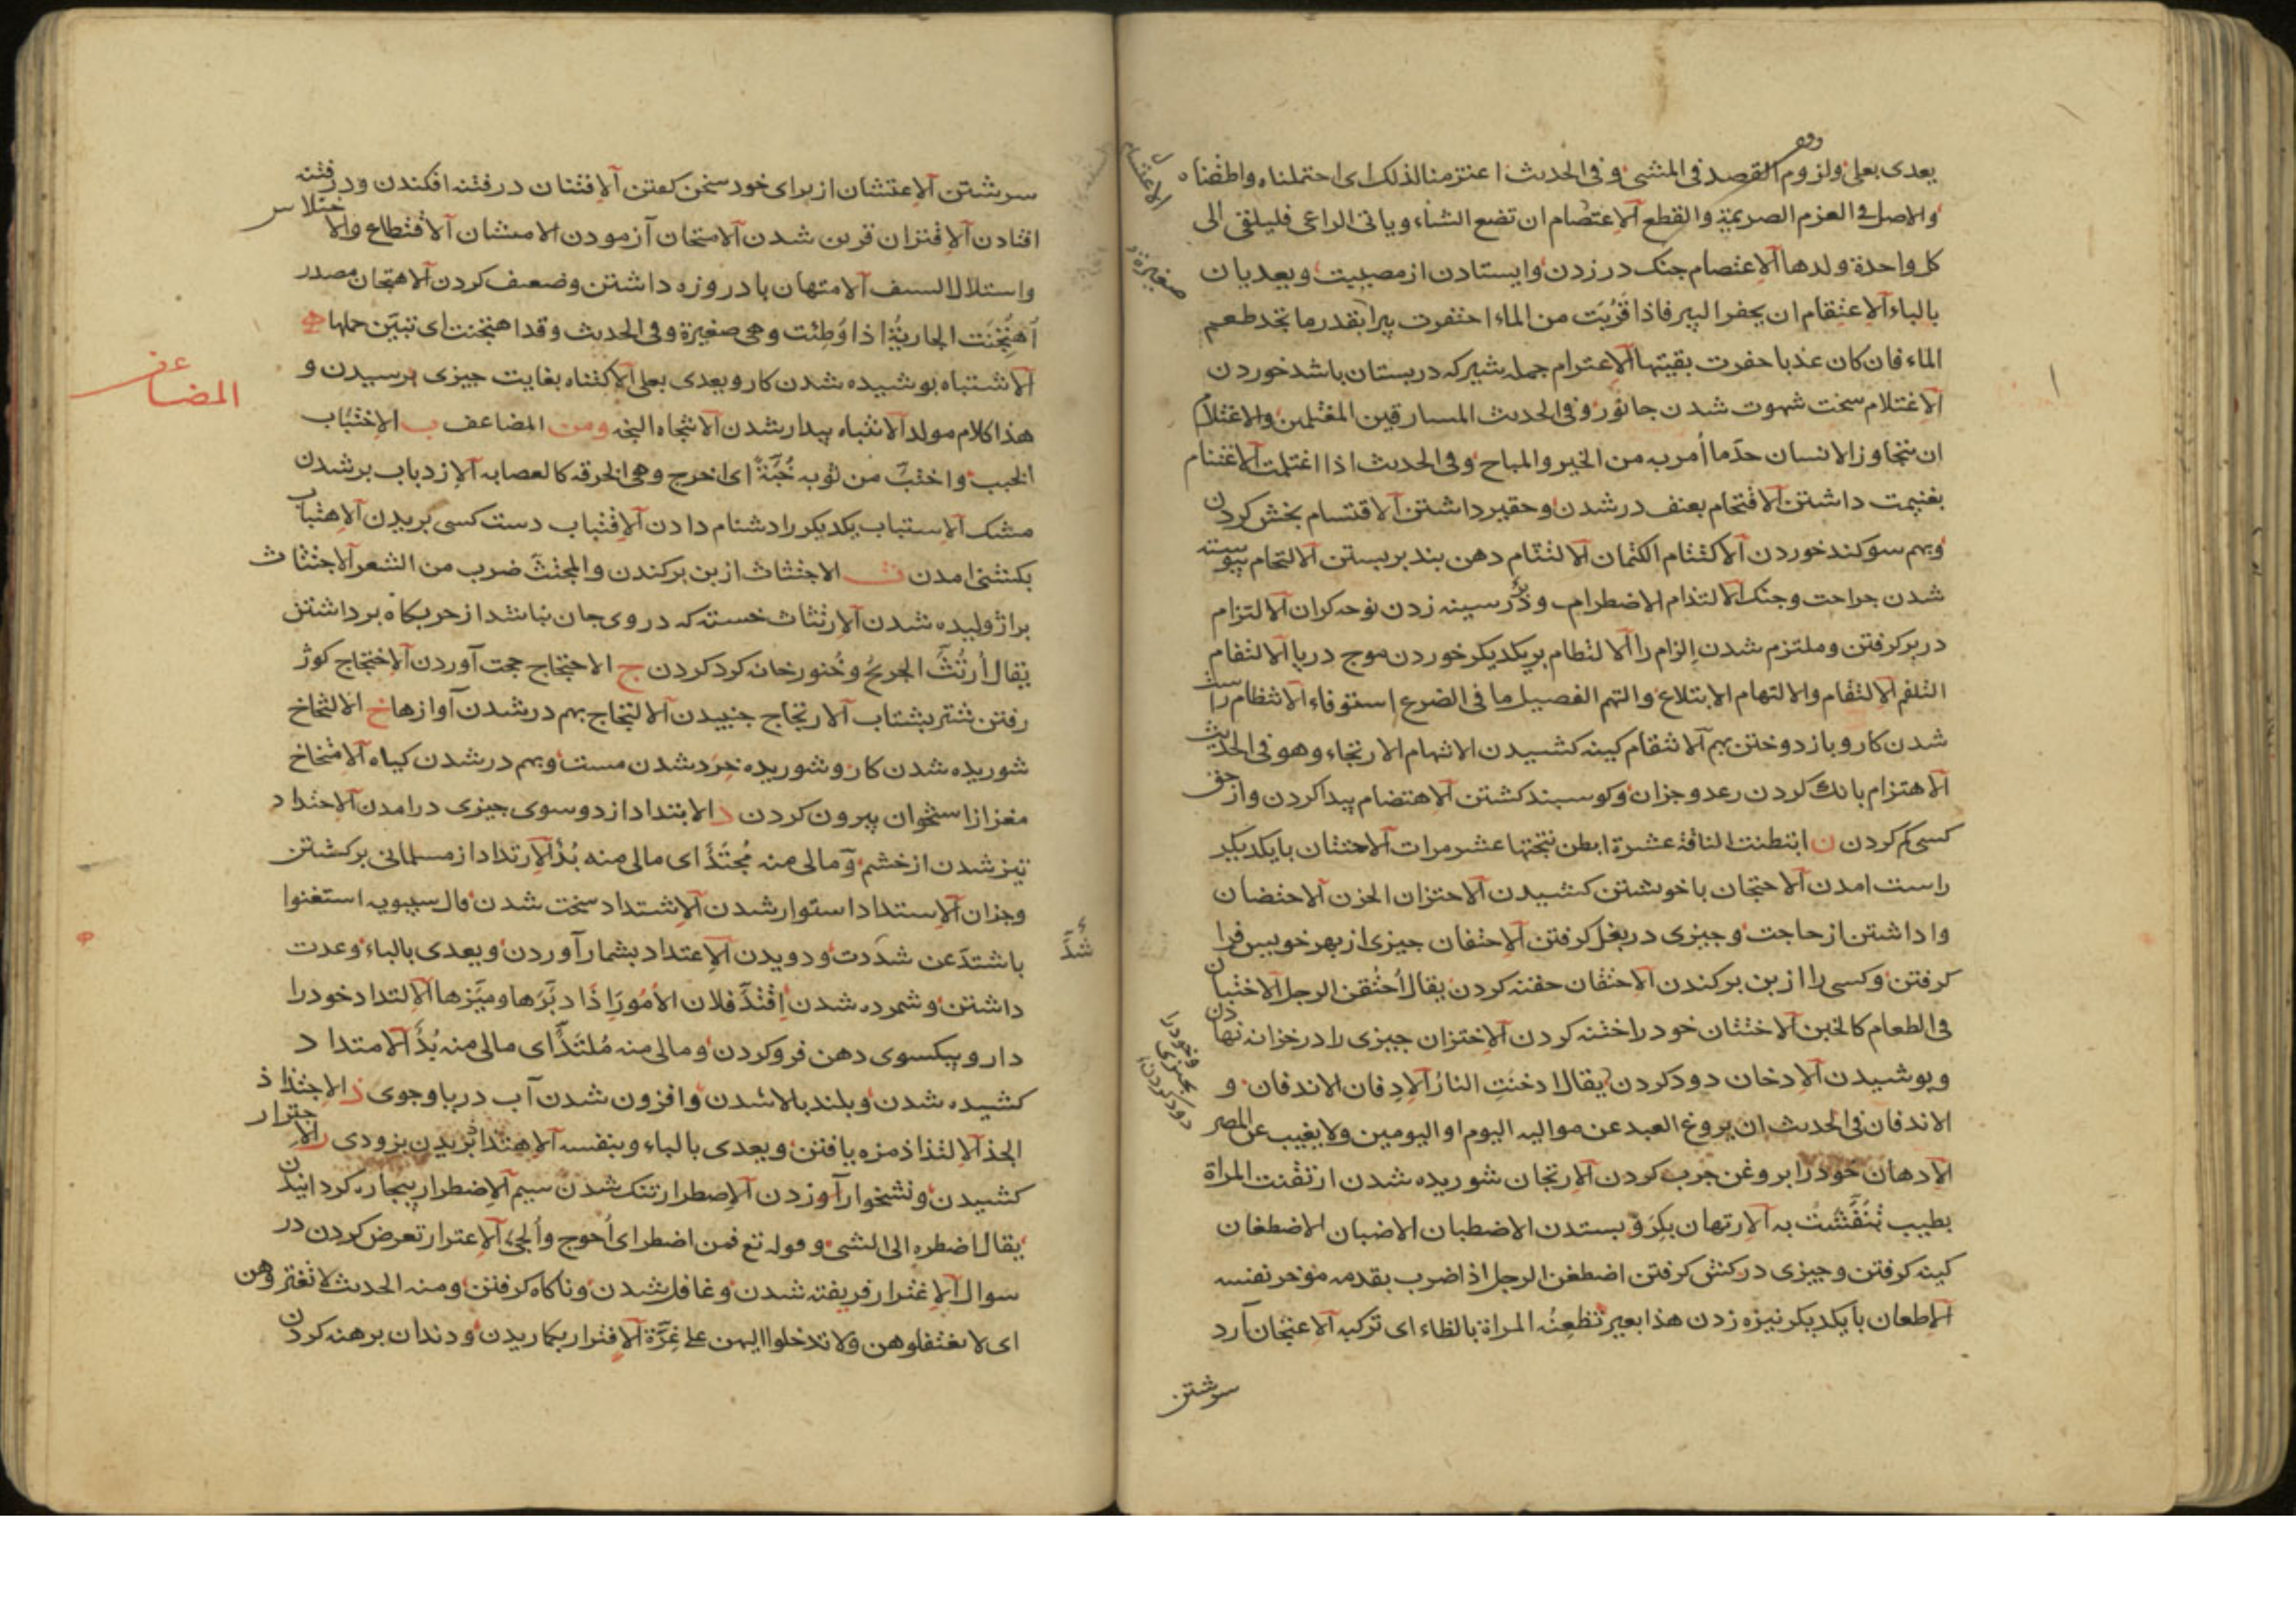 يعدی بعلی ولزوم القصد فی المشی وفی الحدیث اعتزمنا لذلک ای احتملناه واطقناه
والاصل فی العزم الصریمة والقطع الاعتصام ان تضع الشاء ویاتی الراعی فلیلقی الی
کل واحدة ولدها الاعتصام چنک در زدن وایستادن از مصیبت ویعدیان
بالباء الاعتقام ان یحفر البیر فاذا قربت من الماء احتفرت بیرا بقدر ما تجد طعم
الماء فان کان عذبا حفرت بقیتها الاعترام جمله شیر که در پستان باشد خوردن
الاغتلام سخت شهوت شدن جانور وفی الحدیث المسارقین المغتلمین والاغتلام
ان یتجاوز الانسان حد ما أمر به من الخیر والمباح وفی الحدیث اذا اغتلمت الاغتنام
بغنیمت داشتن الاقتحام بعنف در شدن وحقیر داشتن الاقتسام بخش کردن
وبهم سوکند خوردن الاکتتام الکتمان الالتثام دهن بند بر بستن الالتحام پیوسته
شدن جراحت وجنک الالتدام الاضطرام و بر سینه زدن نوحه کران الالتزام
در بر کرفتن وملتزم شدن إلزام را الالتطام بر یکدیکر خوردن موج دریا الالتقام
التلقم الالتقام والالتهام الابتلاع والتهم الفصیل ما فی الضرع استوفاه الانتظام راست
شدن کار وباز دوختن بهم الانتقام کینه کشیدن الانهام الارتجاء وهو فی الحدیث
الاهتزام بانک کردن رعد وجزان وکوسبند کشتن الاهتضام پیدا کردن واز حق
کسی کم کردن ن ابتطنت الناقة عشرة ابطن نتجتها عشر مرات الاحتتان با یکدیکر
راست امدن الاحتجان با خویشتن کشیدن الاحتزان الحزن الاحتضان
وا داشتن از حاجت وچیزی در بغل کرفتن الاحتفان چیزی از بهر خویس فرا
کرفتن وکسی را از بن برکندن الاحتقان حقنه کردن یقال احتقن الرجل الاختبان
فی الطعام کالخبن الاختتان خود را ختنه کردن الاختزان چیزی را در خزانه نهادن
وپوشیدن الادخان دود کردن یقال ادخنت النار الادفان الاندفان و
الاندفان فی الحدیث ان یروغ العبد عن موالیه الیوم او الیومین ولا یغیب عن المصر
الادهان خود را بروغن چرب کردن الارتجان شوریده شدن ارتقنت المراة
بطیب به الارتهان بکرو بستدن الاضطبان الاضبان الاضطغان
کینه کرفتن وچیزی در کنش کرفتن اضطغن الرجل اذا ضرب بقدمه مؤخر نفسه
الاطعان با یکدیکر نیزه زدن هذا بعیر تظعنه المراة بالظاء ای ترکبه الاعتجان آرد
سرشتن
الاغتنام
صغیرة
وخود را
بچیزی
دود کردن
سرشتن الاعتشان از برای خود سخن کفتن الافتنان در فتنه افکندن ودر فتنه
افتادن الاقتران قرین شدن الامتحان آزمودن الامتشان الاقتطاع والاختلاس
واستلال السیف الامتهان بادروزه داشتن وضعیف کردن الاهتجان مصدر
اهتجنت الجاریة اذا وطئت وهی صغیرة وفی الحدیث وقد اهتجنت ای تبین حملها ه
الاشتباه پوشیده شدن کار ویعدی بعلی الاکتناه بغایت چیزی برسیدن و
هذا کلام مولد الانتباه بیدار شدن الانتجاه النجه ومن المضاعف ب الاختباب
الخبب واختب من ثوبه خبة ای اخرج وهی الخرقه کالعصابه الازدباب بر شدن
مشک الاستباب یکدیکر را دشنام دادن الاقتباب دست کسی بریدن الاهتباب
بکشنی امدن ث الاجتثاث از بن برکندن والمجتث ضرب من الشعر الاجتثاث
براژولیده شدن الارتثاث خسته که دروی جان باشد از حربکاه برداشتن
یقال أرتث الجریح وخنور خانه کرد کردن ج الاحتجاج حجت آوردن الاختجاج کوژ
رفتن شتر بشتاب الارتجاج جنبیدن الالتجاج بهم در شدن آوازها خ الالتخاخ
شوریده شدن کار وشوریده خرد شدن مست وبهم در شدن کیاه الامتخاخ
مغز از استخوان بیرون کردن د الابتداد از دو سوی چیزی درامدن الاحتداد
تیز شدن از خشم ومالی منه محتد ای مالی منه بد الارتداد از مسلمانی برکشتن
وجزان الاستداد استوار شدن الاشتداد سخت شدن قال سیبویه استغنوا
باشتد عن شددت ودویدن الاعتداد بشمار آوردن ویعدی بالباء وعدت
داشتن وشمرده شدن اقتد فلان الأمور اذا دبرها ومیزها الالتداد خود را
دارو بیکسوی دهن فرو کردن ومالی منه ملتد ای مالی منه بد الامتداد
کشیده شدن وبلند بالا شدن وافزون شدن آب دریا وجوی ذ الاجتذاذ
الجذ الالتذاذ مزه یافتن ویعدی بالباء وبنفسه الاهتذاذ بریدن بزودی ر الاجترار
کشیدن ونشخوار آوردن الاصطرار تنک شدن سیم الاضطرار بیچاره کردانیدن
یقال اضطره الی الشی وقوله تع فمن اضطر ای أحوج وألجئ الاعترار تعرض کردن در
سوال الاغترار فریفته شدن وغافل شدن وناکاه کرفتن ومنه الحدیث لا تغتروهن
ای لا تغتفلوهن ولا تدخلوا الیهن علی غرة الافترار بکاریدن ودندان برهنه کردن
المضاعف
شد